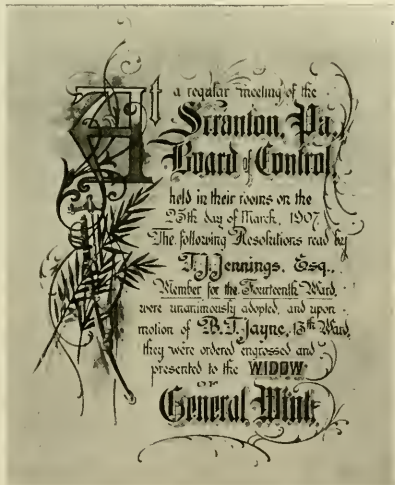 At a regular meeting of the
Scranton, Pa.
Board of Control,
held in their rooms on the
25th day of March, 1907,
The following Resolutions read by
T. J. Jennings, Esq.,
Member for the Fourteenth Ward,
were unanimously adopted, and upon
motion of B. T. Jayne, 13th Ward,
they were ordered engrossed and
presented to the WIDOW
OF
General Wint.